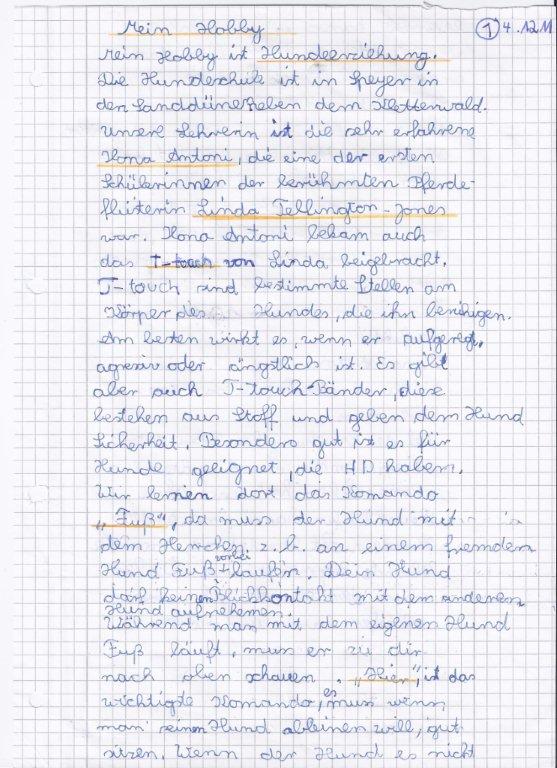 Mein Hobby
① 4.12.11
Mein Hobby ist Hundeerziehung.
Die Hundeschule ist in Speyer in
den Sanddünen neben dem Kletterwald.
Unsere Lehrerin ist die sehr erfahrene
Ilona Antoni, die eine der ersten
Schülerinnen der berühmten Pferde-
flüsterin Linda Tellington-Jones
war. Ilona Antoni bekam auch
das T-touch von Linda beigebracht.
T-touch sind bestimmte Stellen am
Körper des Hundes, die ihn beruhigen.
Am besten wirkt es, wenn er aufgeregt,
agresiv oder ängstlich ist. Es gibt
aber auch T-touch-Bänder, diese
bestehen aus Stoff und geben dem Hund
Sicherheit. Besonders gut ist es für
Hunde geleignet, die HD haben.
Wir lernen dort das Komando
„Fuß“, da muss der Hund mit
dem Herrchen z.b. an einem fremden
Hund Fuß vorbei laufen. Dein Hund
darf keinen Blickkontakt mit dem anderen
Hund aufnehmen.
Während man mit dem eigenen Hund
Fuß läuft, muss er zu dir
nach oben schauen. „Hier“, ist das
wichtigte Komando, es muss wenn
man seinen Hund ableinen will, gut
sitzen. Wenn der Hund es nicht